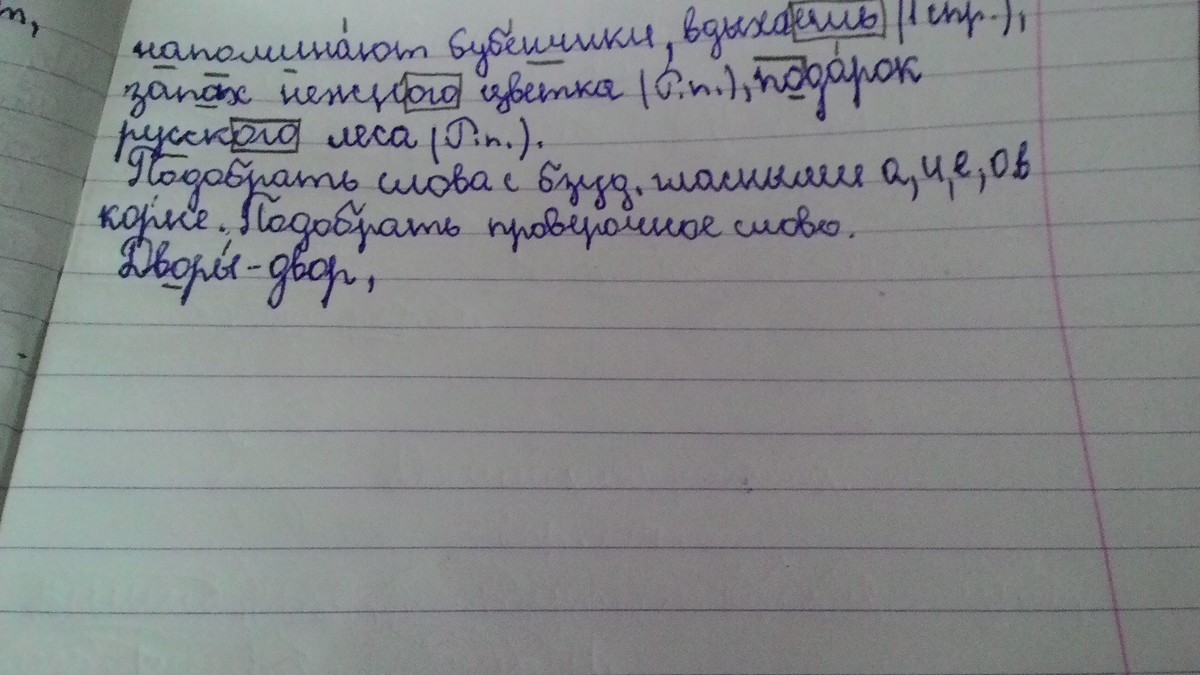 т,
напомина́ют бубе́нчики, вдыхаешь (I спр.),
запах нежного цветка (Р.п.), пода́рок
русского леса (Р.п.).
Подобрать слова с бзуд. гласными а, и, е, о в
корне. Подобрать проверочное слово.
Дворы́ - двор,